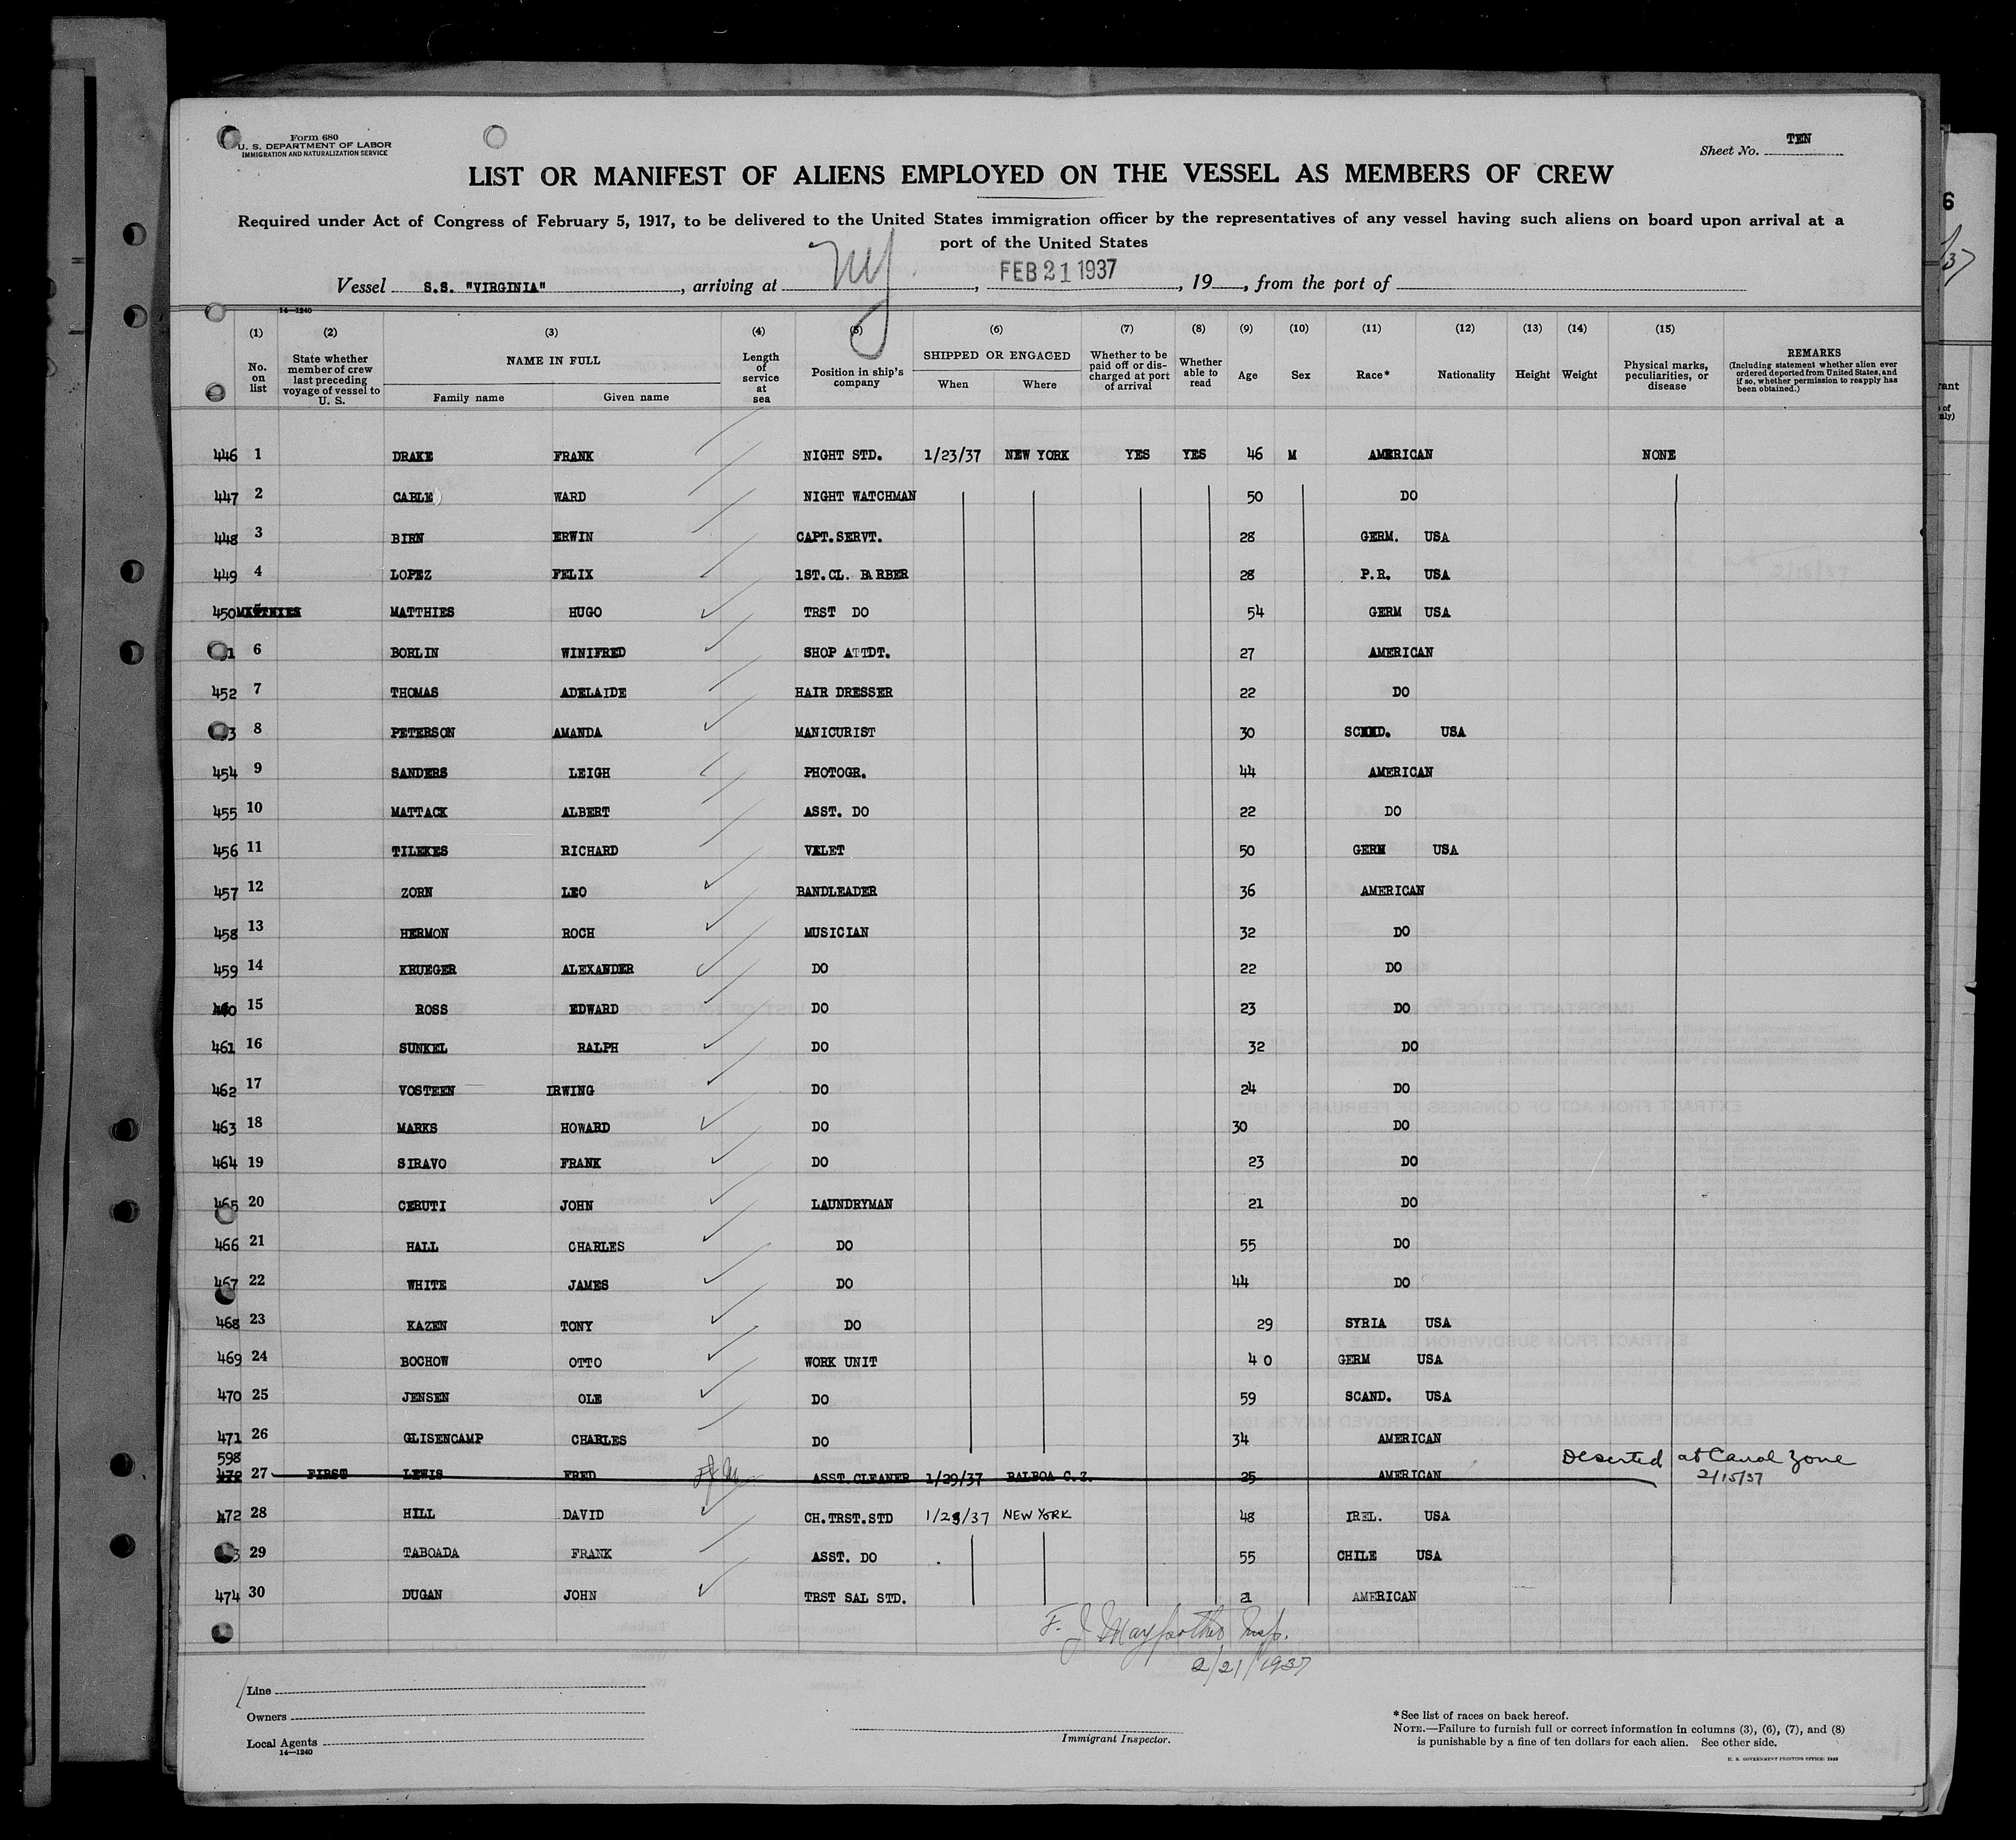 Form 680
U. S. DEPARTMENT OF LABOR
IMMIGRATION AND NATURALIZATION SERVICE
Sheet No. TEN
LIST OR MANIFEST OF ALIENS EMPLOYED ON THE VESSEL AS MEMBERS OF CREW
Required under Act of Congress of February 5, 1917, to be delivered to the United States immigration officer by the representatives of any vessel having such aliens on board upon arrival at a
port of the United States
Vessel S.S. "VIRGINIA", arriving at NY, FEB 21 1937, 19, from the port of
14—1240
(1) (2) (3) (4) (5) (6) (7) (8) (9) (10) (11) (12) (13) (14) (15)
No. on list
State whether member of crew last preceding voyage of vessel to U. S.
NAME IN FULL
Family name Given name
Length of service at sea
Position in ship's company
SHIPPED OR ENGAGED
When Where
Whether to be paid off or discharged at port of arrival
Whether able to read
Age
Sex
Race*
Nationality
Height
Weight
Physical marks, peculiarities, or disease
REMARKS
(Including statement whether alien ever ordered deported from United States, and if so, whether permission to reapply has been obtained.)
446 1 DRAKE FRANK NIGHT STD. 1/23/37 NEW YORK YES YES 46 M AMERICAN NONE
447 2 CABLE WARD NIGHT WATCHMAN 50 DO
448 3 BIRN ERWIN CAPT.SERVT. 28 GERM. USA
449 4 LOPEZ FELIX 1ST.CL. BARBER 28 P.R. USA
450 MATTHIES MATTHIES HUGO TRST DO 54 GERM USA
1 6 BORLIN WINIFRED SHOP ATTDT. 27 AMERICAN
452 7 THOMAS ADELAIDE HAIR DRESSER 22 DO
3 8 PETERSON AMANDA MANICURIST 30 SCND. USA
454 9 SANDERS LEIGH PHOTOGR. 44 AMERICAN
455 10 MATTACK ALBERT ASST. DO 22 DO
456 11 TILEKES RICHARD VALET 50 GERM USA
457 12 ZORN LEO BANDLEADER 36 AMERICAN
458 13 HERMON ROCH MUSICIAN 32 DO
459 14 KRUEGER ALEXANDER DO 22 DO
460 15 ROSS EDWARD DO 23 DO
461 16 SUNKEL RALPH DO 32 DO
462 17 VOSTEEN IRWING DO 24 DO
463 18 MARKS HOWARD DO 30 DO
464 19 SIRAVO FRANK DO 23 DO
465 20 CERUTI JOHN LAUNDRYMAN 21 DO
466 21 HALL CHARLES DO 55 DO
467 22 WHITE JAMES DO 44 DO
468 23 KAZEN TONY DO 29 SYRIA USA
469 24 BOCHOW OTTO WORK UNIT 40 GERM USA
470 25 JENSEN OLE DO 59 SCAND. USA
471 26 GLISENCAMP CHARLES DO 34 AMERICAN
598
472 27 FIRST LEWIS FRED ASST.CLEANER 1/29/37 BALBOA C.Z. 25 AMERICAN Deserted at Canal Zone
2/15/37
472 28 HILL DAVID CH.TRST.STD 1/23/37 NEW YORK 48 IREL. USA
3 29 TABOADA FRANK ASST. DO 55 CHILE USA
474 30 DUGAN JOHN TRST SAL STD. 21 AMERICAN
2/21/1937
Line
Owners
Local Agents
14—1240
Immigrant Inspector.
*See list of races on back hereof.
NOTE.—Failure to furnish full or correct information in columns (3), (6), (7), and (8)
is punishable by a fine of ten dollars for each alien. See other side.
U. S. GOVERNMENT PRINTING OFFICE: 1933